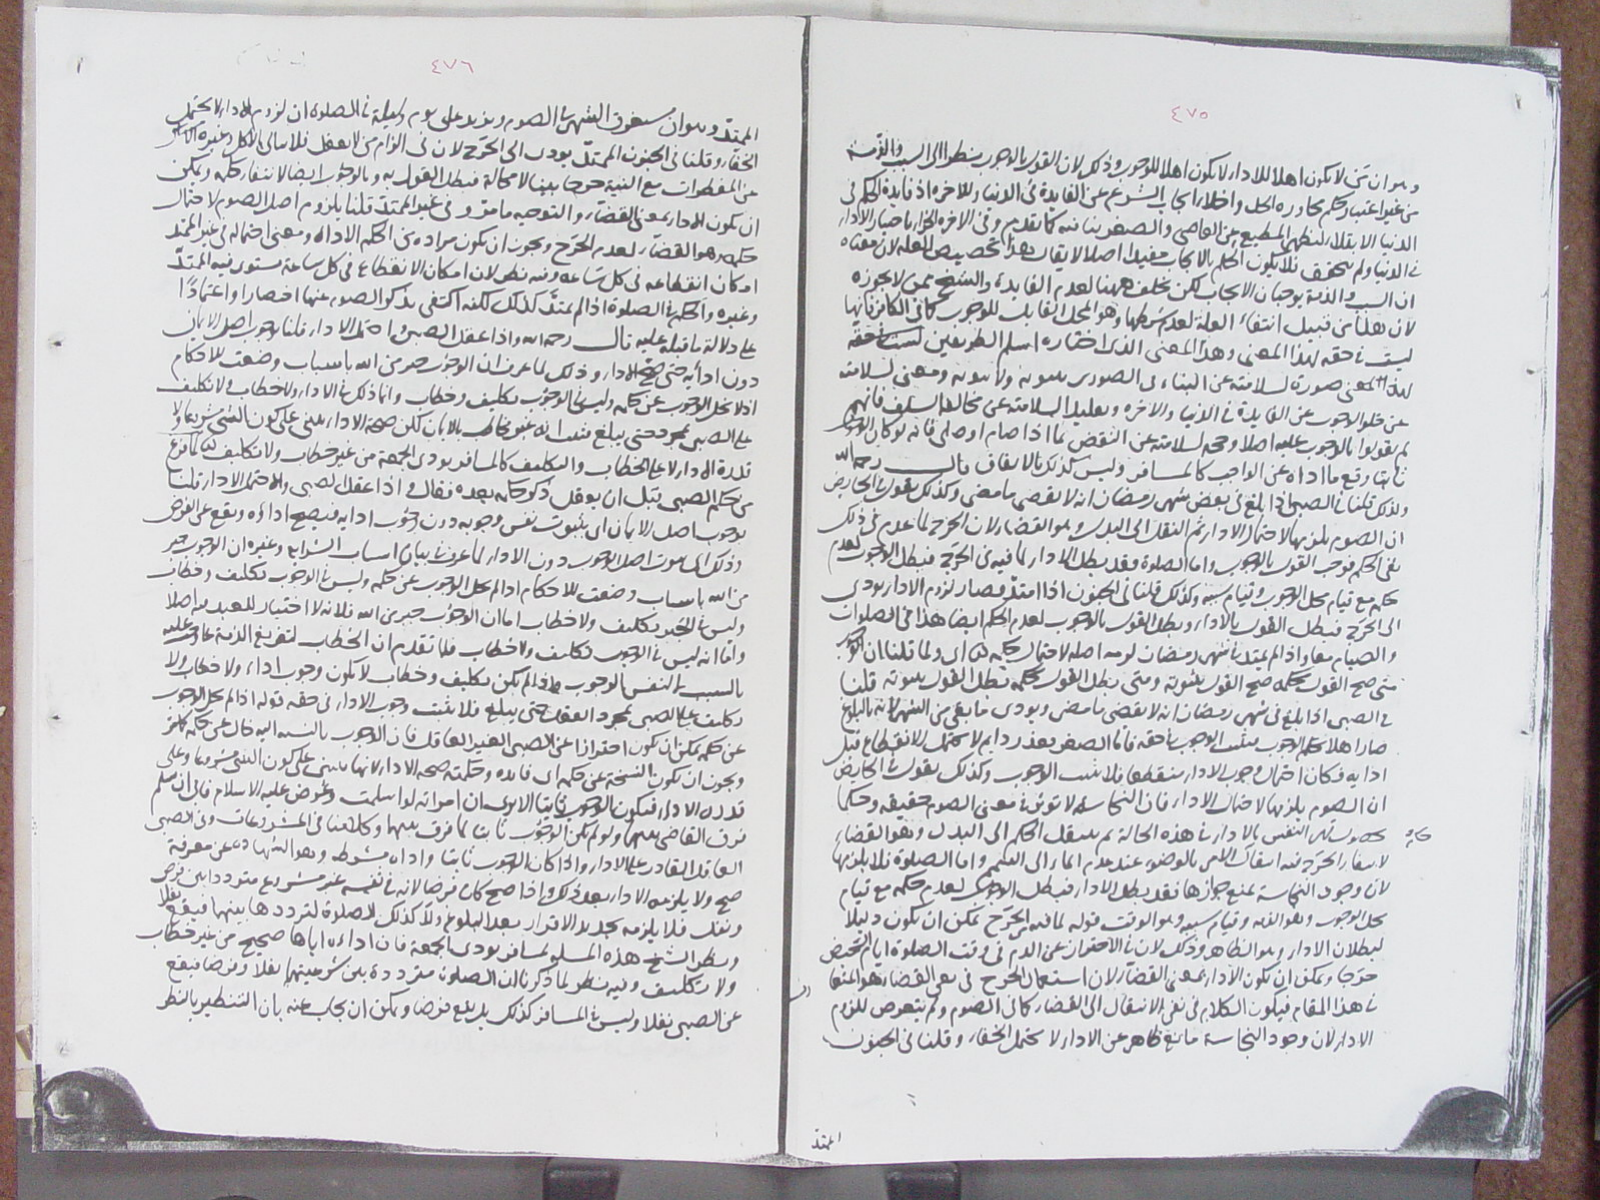 ٤٧٥
وهو ان من لا يكون اهلا للاداء لا يكون اهلا للوجوب وذلك لان القول بالوجوب نظرا الى السبب والذمة
من غير اعتبار الحكم مجاوزة الحد واخلاء ايجاب الشرع عن الفايدة في الدنيا والاخره اذ فايدة الحكم في
الدنيا الابتلاء ليظهر المطيع من العاصي والصغر ينافيه كما تقدم وفي الاخرة الجزاء باختيار الاداء
في الدنيا ولم يتحقق فلا يكون الحكم بالايجاب مفيدا اصلا لا يقال هذا تخصيص العلة لان معناه
ان السبب والذمة يوجبان الايجاب لكن تخلف ههنا لعدم الفايدة والشيخ ممن لا يجوزه
لان هذا من قبيل انتفاء العلة لعدم شرطها وهو المحل القابل للوجوب كما في الكافر فانها
ليست في حقه لهذا المعنى وهذا المعنى الذي اختاره اسلم الطريقين
لهذا المعنى صورة لسلامته عن البناء في الصورتين ومعنى لسلامته
عن خلو الوجوب عن الفايدة في الدنيا والاخره وتقليدا لسلامته عن مخالفة السلف فانهم
لم يقولوا بالوجوب عليه اصلا وحجة لسلامته عن النقض بما اذا صام او صلى فانه لو كان الوجوب
ثابتا وقع ما اداه عن الواجب كالمسافر وليس كذلك بالاتفاق قال رحمه الله
ولذلك قلنا في الصبي اذا بلغ في بعض شهر رمضان انه لا يقضي ما مضى وكذلك نقول في الحائض
ان الصوم يلزمها لاحتمال الاداء ثم النقل الى البدل وهو القضاء لان الحرج لما عدم في ذلك
بقي الحكم فوجب القول بالوجوب واما الصلوة فقد بطل الاداء لما فيه من الحرج فبطل الوجوب لعدم
حكمه مع قيام محل الوجوب وقيام سببه وكذلك قلنا في الجنون اذا امتد فصار لزوم الاداء يودي
الى الحرج فبطل القول بالاداء وبطل القول بالوجوب لعدم الحكم ايضا هذا في الصلوات
والصيام معا واذا لم يمتد في شهر رمضان لزمه اصله لاحتمال حكمه اي ولما قلنا ان الوجوب
متى صح القول بحكمه صح القول بثبوته ومتى بطل القول بحكمه بطل القول بثبوته قلنا
في الصبي اذا بلغ في شهر رمضان انه لا يقضي ما مضى ويودي ما بقي من الشهر لانه بالبلوغ
صار اهلا لحكم الوجوب فيثبت الوجوب في حقه فاما الصغر بعذر دايم لا يحتمل الانقطاع قبل
ادايه فكان احتمال وجوب الاداء منقطعا فلا يثبت الوجوب وكذلك نقول في الحائض
ان الصوم يلزمها لاحتمال الاداء فان النجاسة لا توثر في معنى الصوم حقيقة وحكما
النفس بالاداء في هذه الحالة ثم ينتقل الحكم الى البدل وهو القضاء
لانتفاء الحرج فيه انتقال الامر بالوضوء عند عدم الماء الى التيمم واما الصلوة فلا يلزمها
لان وجود النجاسة يمنع جوازها فقد بطل الاداء فبطل الوجوب لعدم حكمه مع قيام
محل الوجوب وهو الذمة وقيام سببه وهو الوقت قوله لما فيه من الحرج يمكن ان يكون دليلا
لبطلان الاداء وهو الظاهر وذلك لان في الاحتراز عن الدم في وقت الصلوة ايام الحيض
حرجا ويمكن ان يكون الاداء بمعنى القضاء لان استعمال الحرج في نفي القضاء
في هذا المقام فيكون الكلام في نفي الانتقال الى القضاء كما في الصوم ولم يتعرض للزوم
الاداء لان وجود النجاسة مانع ظاهر عن الاداء لا يحتمل الخفاء وقلنا في الجنون
الممتد
٤٧٦
الممتد وهو ان يستغرق الشهر في الصوم ويزيد على يوم وليلة في الصلوة ان لزوم الاداء لا يحتمل
الخفاء وقلنا في الجنون الممتد يودي الى الحرج لان في الزام من لا يعقل
عن المفطرات مع النية حرجا بينا لا محالة فبطل القول به وبالوجوب ايضا لانتفاء حكمه ويمكن
ان يكون الاداء بمعنى القضاء والتوجيه ما مر وفي غير الممتد قلنا يلزم اصل الصوم لاحتمال
حكمه وهو القضاء لعدم الحرج ويجوز ان يكون مراده من الحكم الاداء ومعنى احتماله في غير الممتد
امكان انقطاعه في كل ساعة وفيه نظر لان امكان الانقطاع في كل ساعة مستو فيه الممتد
وغيره والحكم في الصلوة اذا لم يمتد كذلك لكنه اكتفى بذكر الصوم عنها اختصارا واعتمادا
على دلالة ما قبله عليه قال رحمه الله واذا عقل الصبي واحتمل الاداء قلنا بوجوب اصل الايمان
دون ادائه حتى صح الاداء وذلك لما عرف ان الوجوب جبر من الله باسباب وضعت للاحكام
اذا لم يخل الوجوب عن حكمه وليس في الوجوب تكليف وخطاب وانما ذلك في الاداء ولا خطاب ولا تكليف
على الصبي بمجرده حتى يبلغ فثبت انه غير مخاطب بالايمان لكن صحة الاداء يبتني على كون الشيء مشروعا ولا
قدرة الاداء لا على الخطاب والتكليف كالمسافر يودي الجمعة من غير خطاب ولا تكليف لما فرغ
من حكم الصبي قبل ان يعقل ذكر حكمه بعده فقال واذا عقل الصبي واحتمل الاداء قلنا
بوجوب اصل الايمان اي بثبوت نفس وجوبه دون وجوب ادايه فيصح اداؤه ويقع عن الفرض
وذلك اي ثبوت اصل الوجوب دون الاداء لما عرف في بيان اسباب الشرايع وغيره ان الوجوب جبر
من الله باسباب وضعت للاحكام اذا لم يخل الوجوب عن حكمه وليس في الوجوب تكليف وخطاب
وليس في الجبر تكليف ولا خطاب اما ان الوجوب جبر من الله فلانه لا اختيار للعبد فيه اصلا
واما انه ليس في الوجوب تكليف ولا خطاب فلما تقدم ان الخطاب لتفريغ الذمة عما وجب عليه
بالسبب في النفس الوجوب فاذا لم يكن تكليف وخطاب لا يكون وجوب اداء ولا خطاب ولا
تكليف على الصبي بمجرد العقل حتى يبلغ فلا يثبت وجوب الاداء في حقه قوله اذا لم يخل الوجوب
عن حكمه يمكن ان يكون احترازا عن الصبي الغير العاقل فان الوجوب بالنسبة اليه خال عن حكمه كما مر
ويجوز ان يكون النسخة عن حكمة اي فايدة وحكمته صحة الاداء لانها يبتني على كون الشيء مشروعا وعلى
قدرة الاداء فيكون الوجوب ثابتا الا يرى ان امراته لو اسلمت وعرض عليه الاسلام فابى ان يسلم
فرق القاضي بينهما ولو لم يكن الوجوب ثابتا لما فرق بينهما وكلامنا في المشروعات وفي الصبي
العاقل القادر على الاداء واذا كان الوجوب ثابتا واداه بشرطه وهو الشهادة عن معرفة
صح ولا يلزمه الاداء بعد ذلك واذا صح كان فرضا لانه في نفسه غير مشروع متردد بين فرض
ونفل فلا يلزمه تجديد الاقرار بعد البلوغ ولا كذلك الصلوة لترددها بينهما فيقع نفلا
ونظر الشيخ هذه المسئلة بمسافر يودي الجمعة فان اداءه اياها صحيح من غير خطاب
ولا تكليف وفيه نظر لما ذكرنا ان الصلوة مترددة بين شرعيتها نفلا وفرضا فيقع
عن الصبي نفلا وليس في المسافر كذلك بل يقع فرضا ويمكن ان يجاب عنه بان التنظير بالنظر